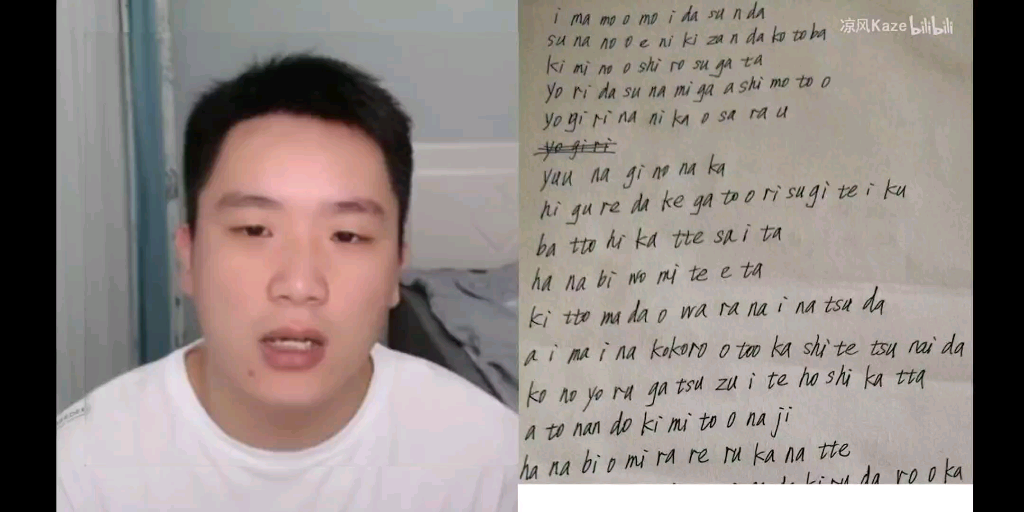 凉风Kaze bilibili
i ma mo o mo i da su n da
su na no o e ni ki za n da ko to ba
ki mi no o shi ro su ga ta
yo ri da su na mi ga a shi mo to o
yo gi ri na ni ka o sa ra u
yo gi ri
yuu na gi no na ka
hi gu re da ke ga to o ri su gi te i ku
ba tto hi ka tte sa i ta
ha na bi wo mi te e ta
ki tto ma da o wa ra na i na tsu da
a i ma i na kokoro o too ka shi te tsu nai da
ko no yo ru ga tsu zu i te ho shi ka tta
a to nan do ki mi to o na ji
ha na bi o mi ra re ru ka na tte
da ro o ka